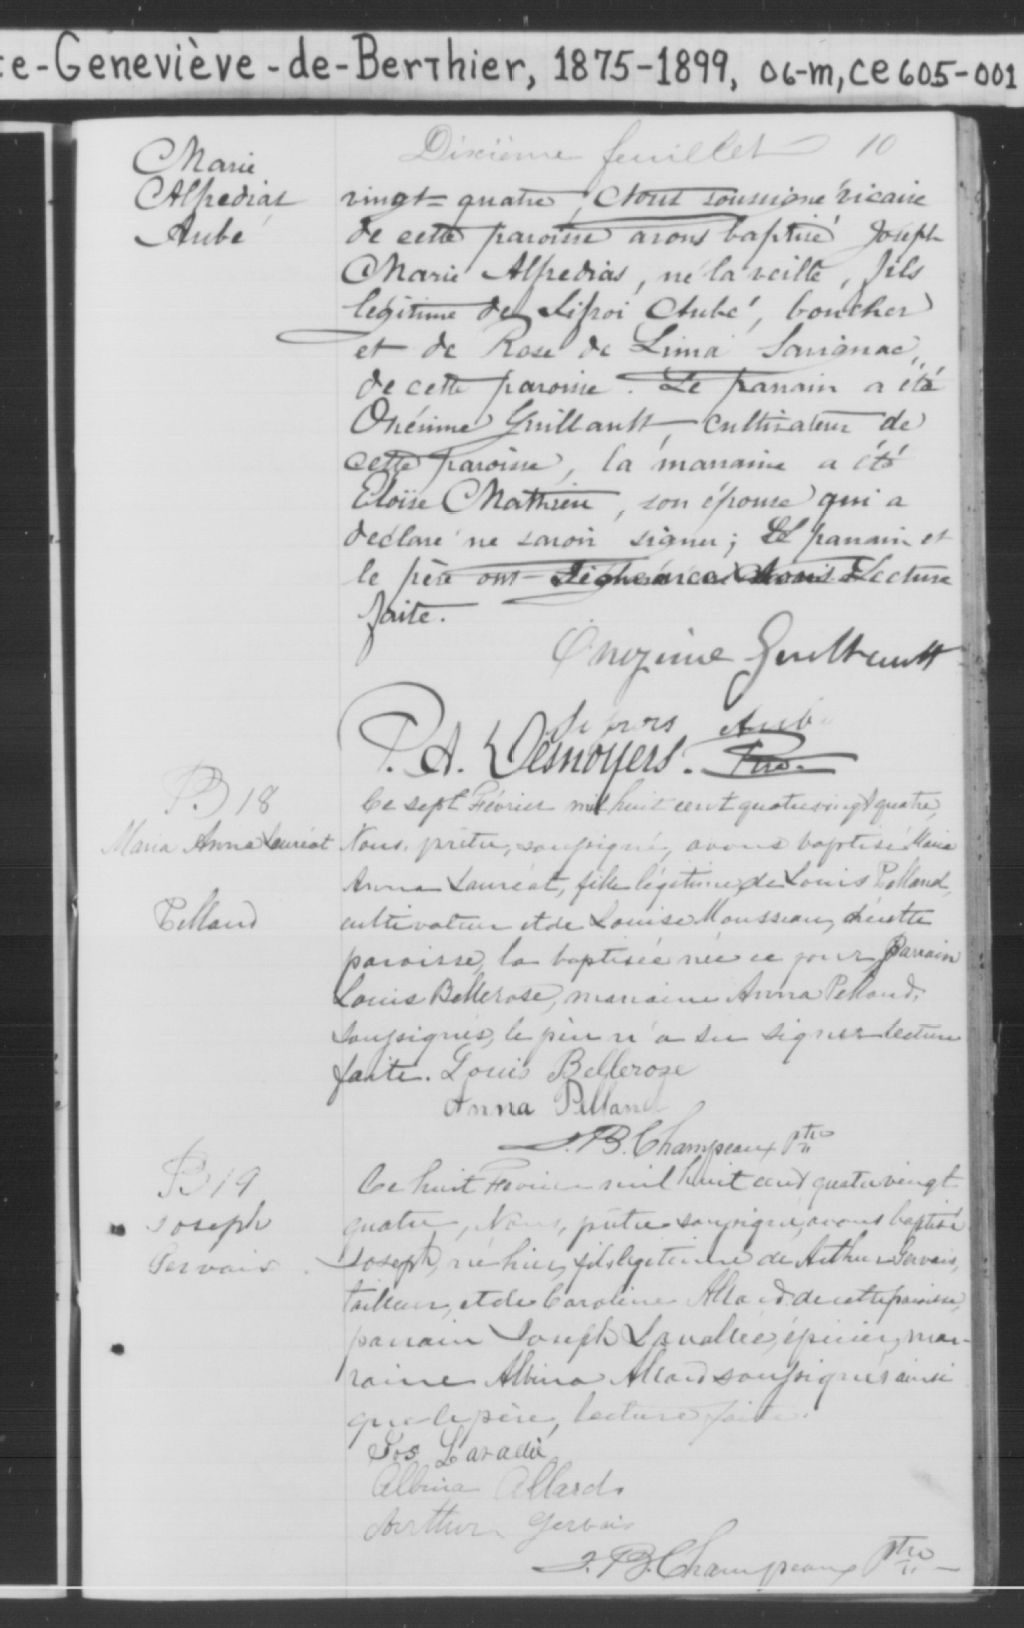 te-Geneviève-de-Berthier, 1875-1899, 06-m, ce605-001
Dixième feuillet 10
Marie
Alfredias
Aubé
vingt-quatre, Nous soussigné vicaire
de cette paroisse avons baptisé Joseph
Marie Alfredias, né la veille, fils
légitime de Aubé, boucher
et de Rose de Lima Savignac,
de cette paroisse. Le parrain a été
Onésime Guilbault, cultivateur de
cette paroisse, la marraine a été
Eloïse Mathieu, son épouse qui a
déclaré ne savoir signer; Le parrain et
le père ont signé avec Nous Lecture
faite.
Onezime Guilbault
Aubé
P. A. Desnoyers. Ptre.
B 18
Maria Anna Lauréat
Pelland
Ce sept Février mil huit cent quatrevingt quatre,
Nous, prêtre, soussigné, avons baptisé Maria
Anna Lauréat, fille légitime de Louis Pelland,
cultivateur et de Louise Mousseau, de cette
paroisse, la baptisée née ce jour, Parrain
Louis Bellerose, marraine Anna Pelland,
soussignés, le père n'a su signer lecture
faite. Louis Bellerose
Anna Pelland
J. B. Champeaux Ptre
B 19
Joseph
Gervais
Ce huit Février mil huit cent quatre vingt
quatre, Nous, prêtre soussigné, avons baptisé
Joseph, né hier, fils légitime de Arthur Gervais,
tailleur, et de Caroline Allard de cette paroisse,
parrain Joseph Lavallée, épicier, mar-
raine Albina Allard soussignés ainsi
que le père, lecture faite.
Jos Lavallé
Albina Allard
Arthur Gervais
J. B. Champeaux Ptre